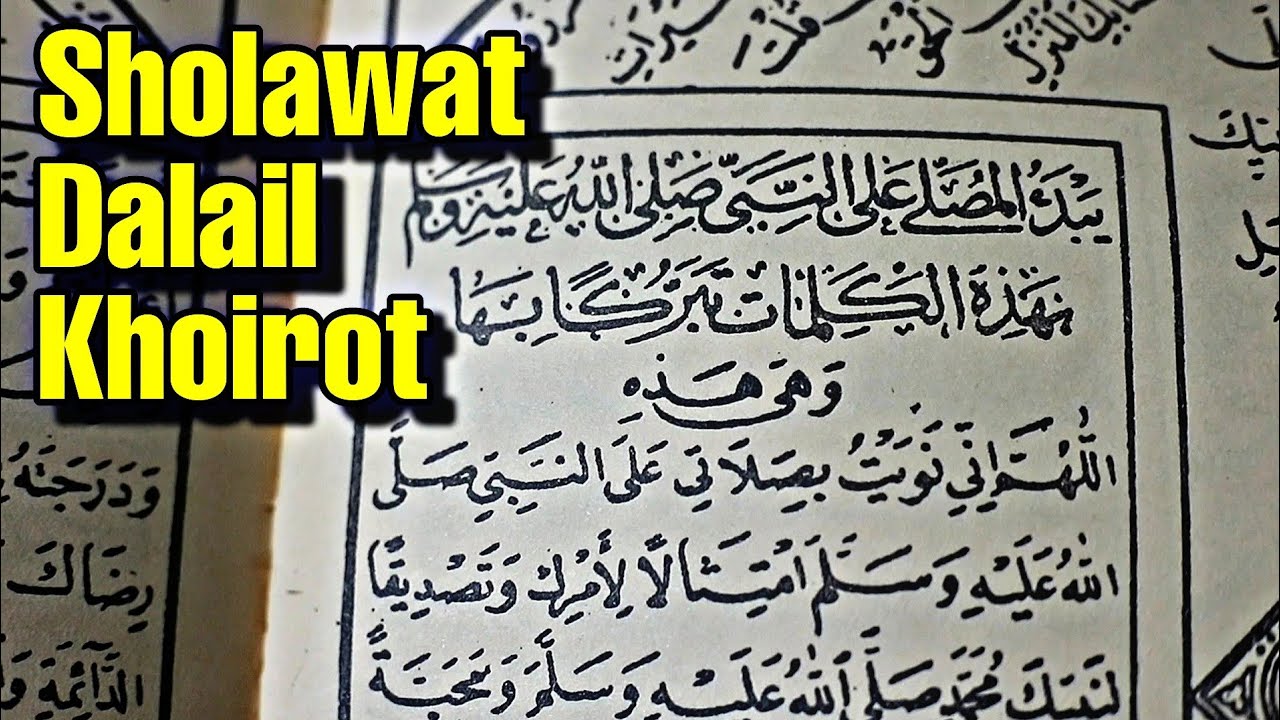 Sholawat
Dalail
Khoirot
يَبْدَءُ الْمُصَلِّي عَلَى النَّبِيِّ صَلَّى اللهُ عَلَيْهِ وَسَلَّمَ
بِهَذِهِ الْكَلِمَاتِ تَبَرُّكًا بِهَا
وَهِيَ هَذِهِ
اَللّٰهُمَّ اِنِّي نَوَيْتُ بِصَلَاتِي عَلَى النَّبِيِّ صَلَّى
اللهُ عَلَيْهِ وَسَلَّمَ امْتِثَالًا لِأَمْرِكَ وَتَصْدِيقًا
لِنَبِيِّكَ مُحَمَّدٍ صَلَّى اللهُ عَلَيْهِ وَسَلَّمَ وَمَحَبَّةً
وَدَرَجَتُهُ
رِضَاكَ
الدَّآئِمَةِ